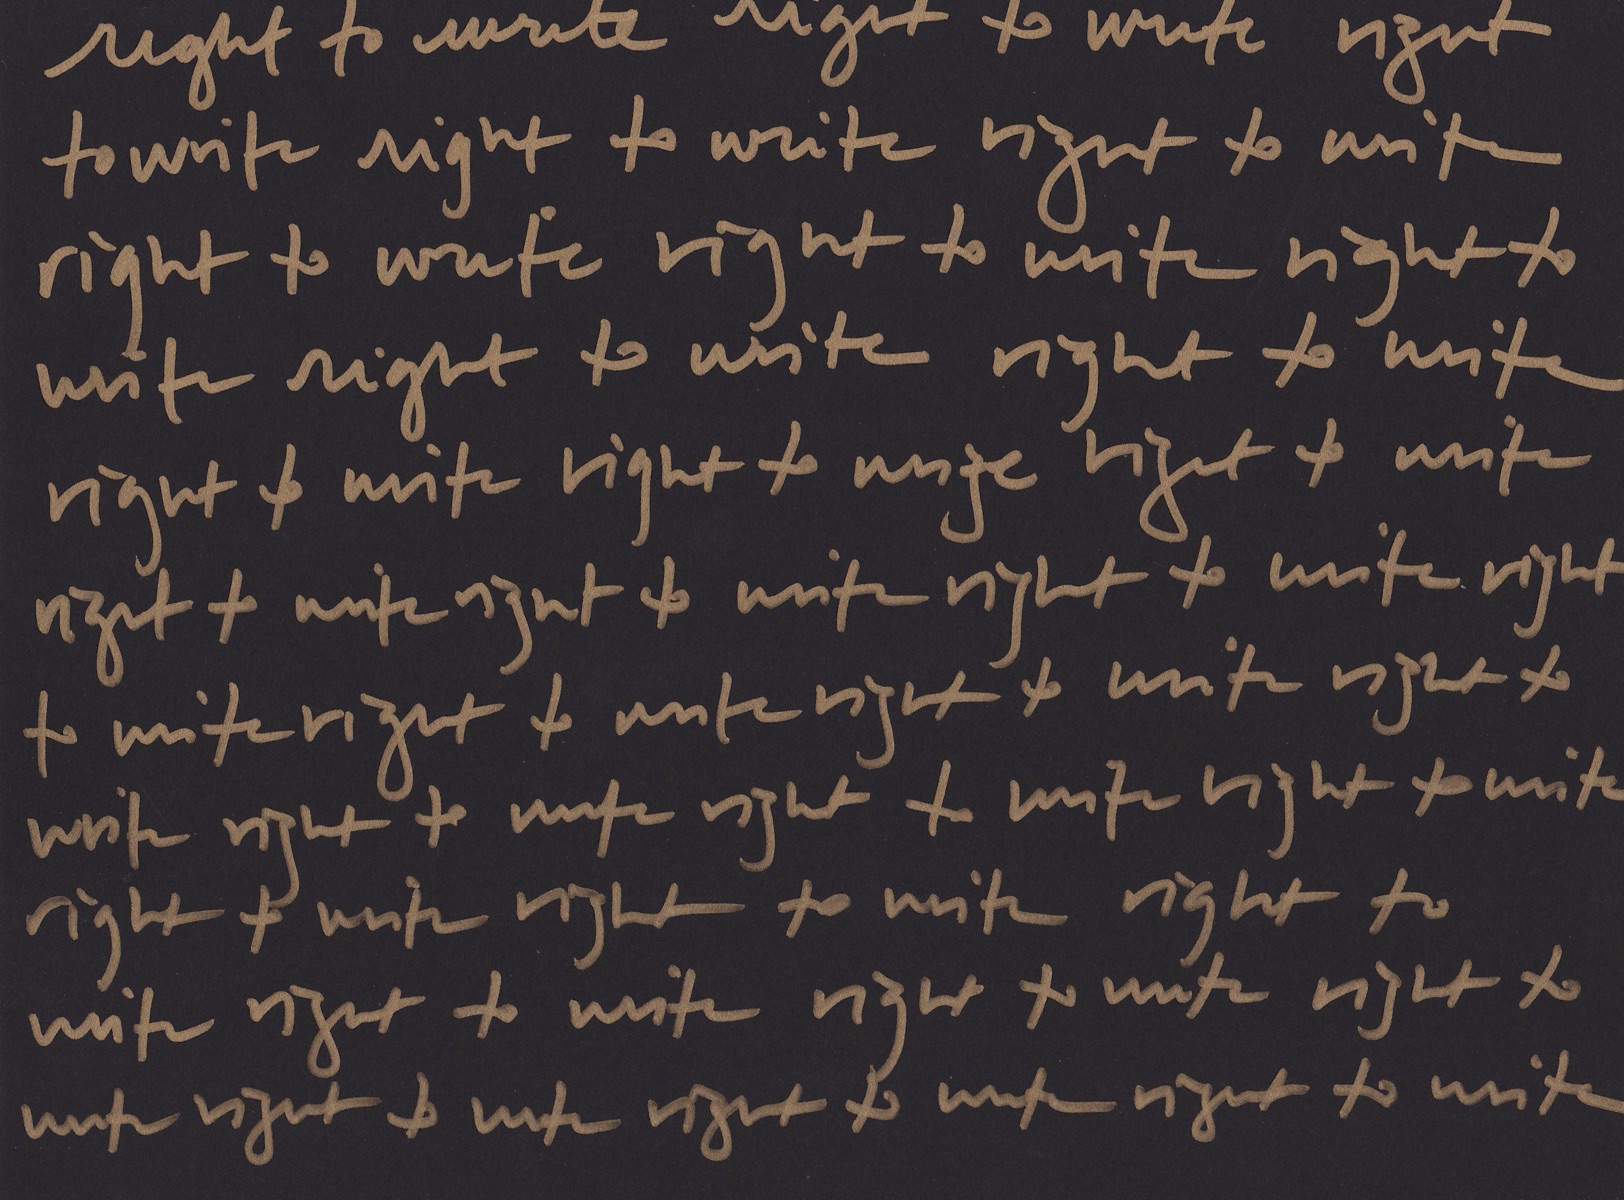 right to write right to write right
to write right to write right to write
right to write right to write right to
write right to write right to write
right to write right to write right to write
right to write right to write right to write right
to write right to write right to write right to
write right to write right to write right to write
right to write right to write right to
write right to write right to write right to
write right to write right to write right to write